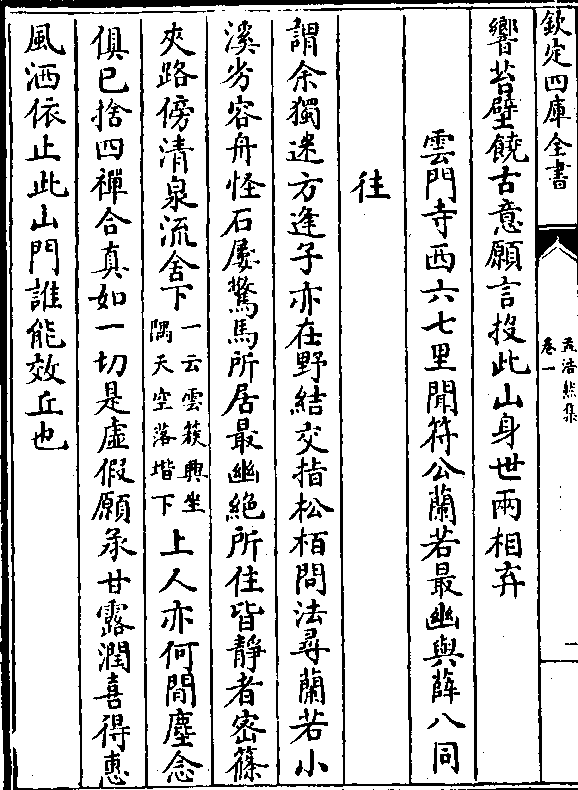 欽定四庫全書
孟浩然集
卷一
二
響苔壁饒古意願言投此山身世兩相弃
雲門寺西六七里聞符公蘭若最幽與薛八同
往
謂余獨迷方逢子亦在野結交指松栢問法尋蘭若小
溪劣容舟怪石屢驚馬所居最幽絕所住皆靜者密篠
夾路傍清泉流舍下一云雲簇興坐隅天空落堦下上人亦何聞塵念
俱已捨四禪合真如一切是虛假願承甘露潤喜得惠
風洒依止此山門誰能效丘也